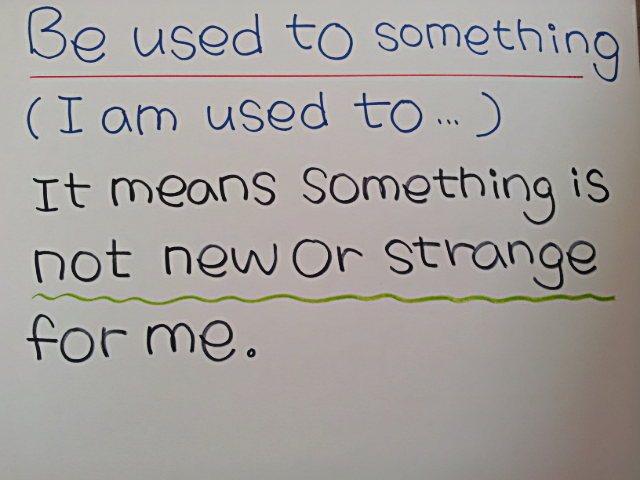 Be used to something
(I am used to...)
It means something is
not new or strange
for me.